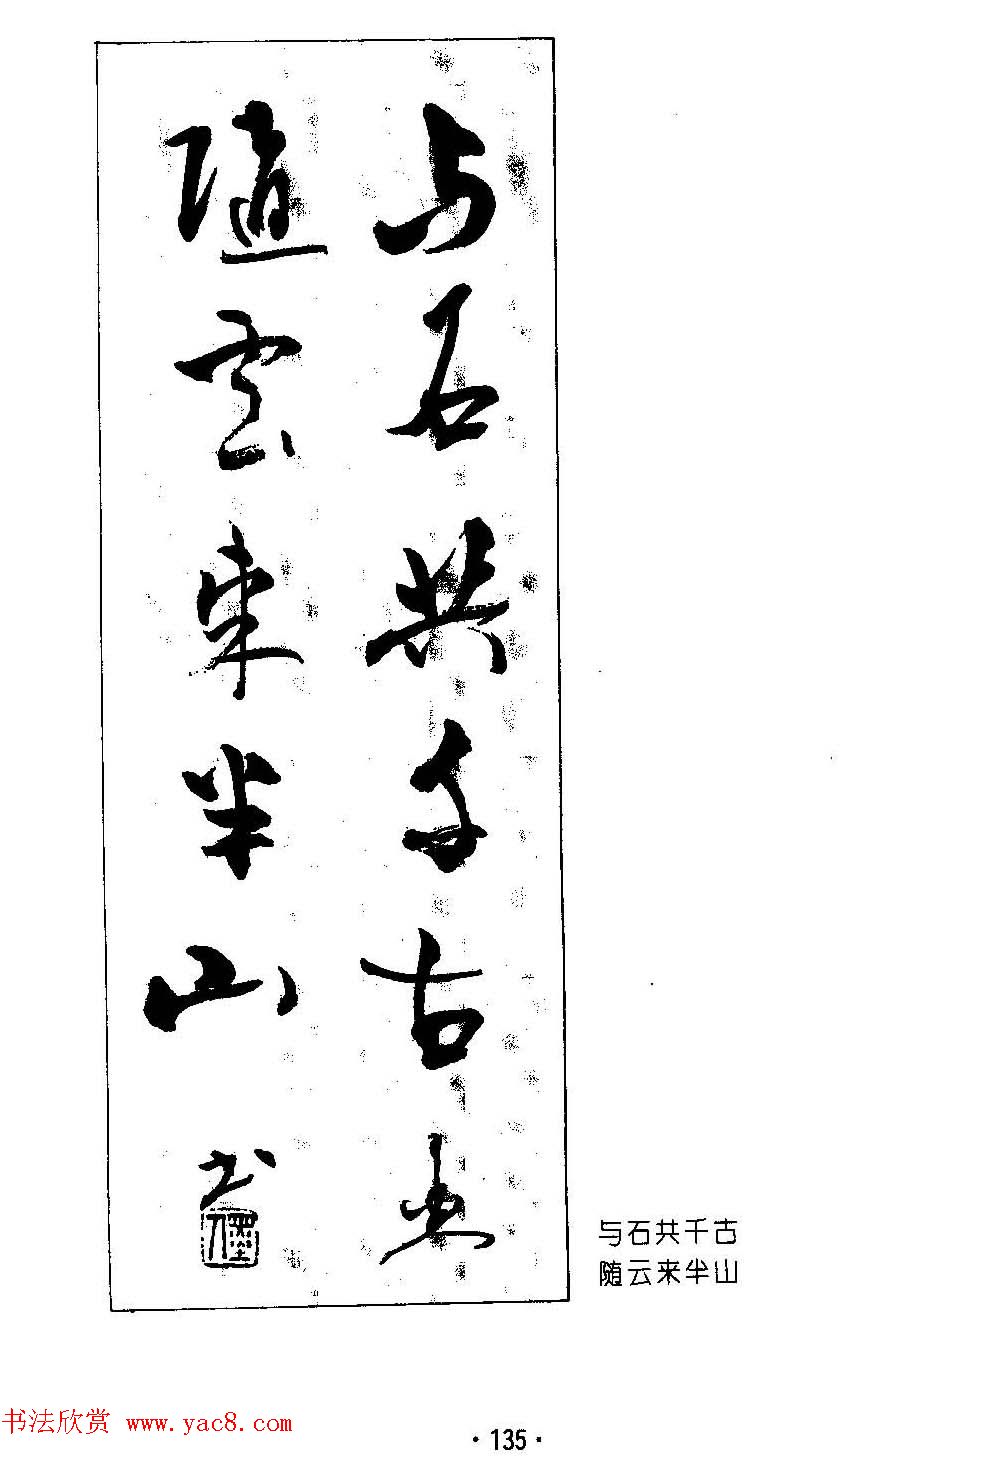 与石共千古
隨雲來半山
书
与石共千古
随云来半山
书法欣赏 www.yac8.com
·135·